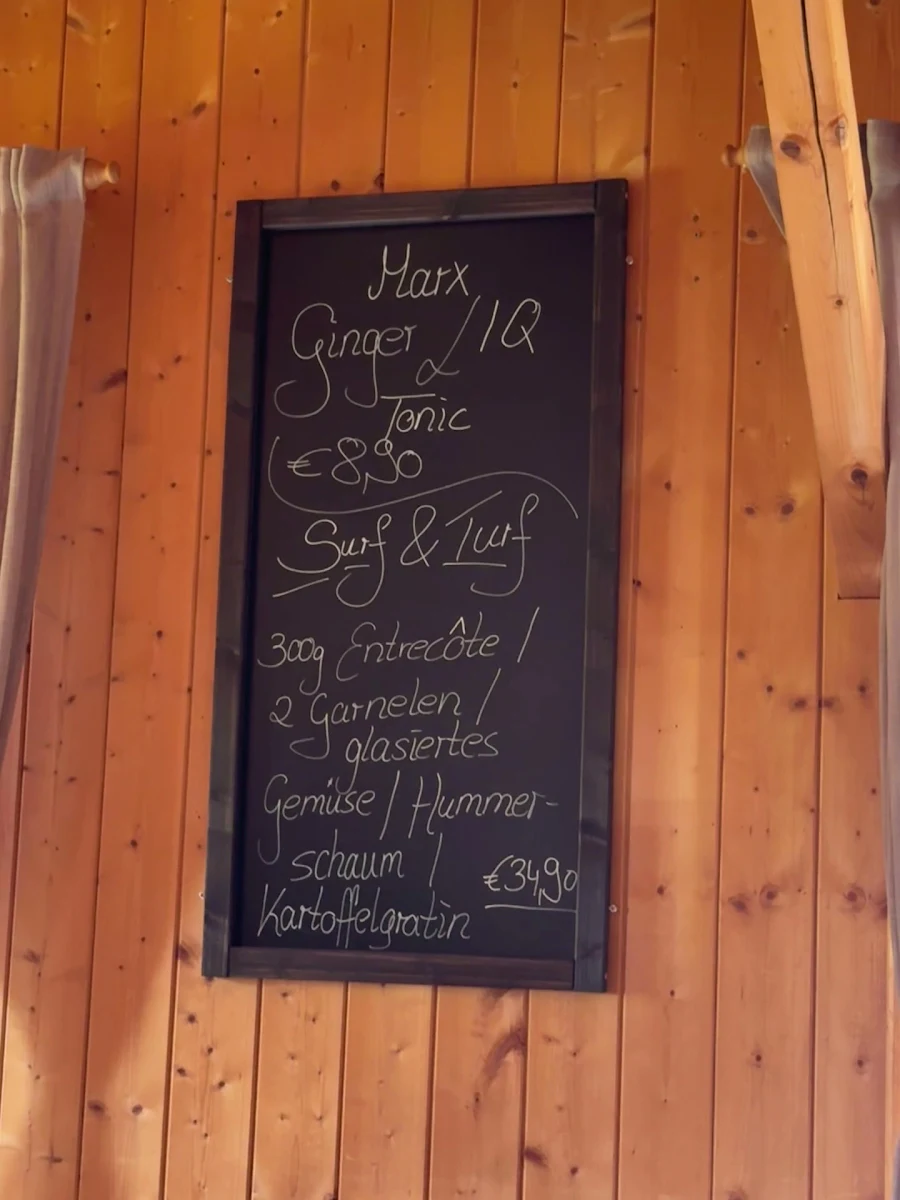 Marx
Ginger / IQ
Tonic
€8,90
Surf & Turf
300g Entrecôte /
2 Garnelen /
glasiertes
Gemüse / Hummer-
schaum /
€34,90
Kartoffelgratin